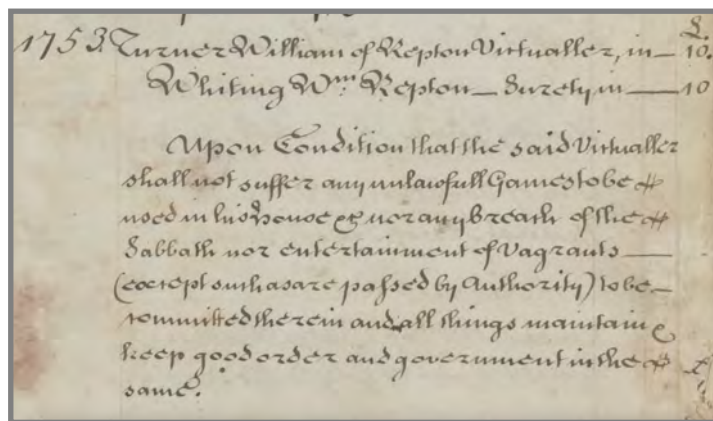 £.
1753. Turner William of Repton Victualler, in — 10.
Whiting Wm. Repton — Surety in — 10
Upon Condition that the said Victualler
shall not suffer any unlawfull Games to be
used in his House &c nor any breach of the
Sabbath nor entertainment of Vagrants —
(except such as are passed by Authority) to be —
committed therein and all things maintain &
keep good order and government in the
same.